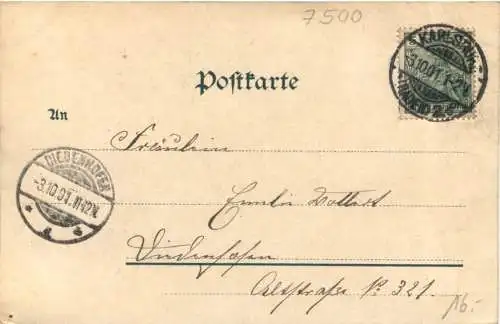 7500
KARLSRUHE
3.10.01.11-12V.
Postkarte
An
Fräulein
DIEDENHOFEN
-3.10.01.11-12V.
* a *
Emilie
Diedenhofen
Altstraße No 321
16.-